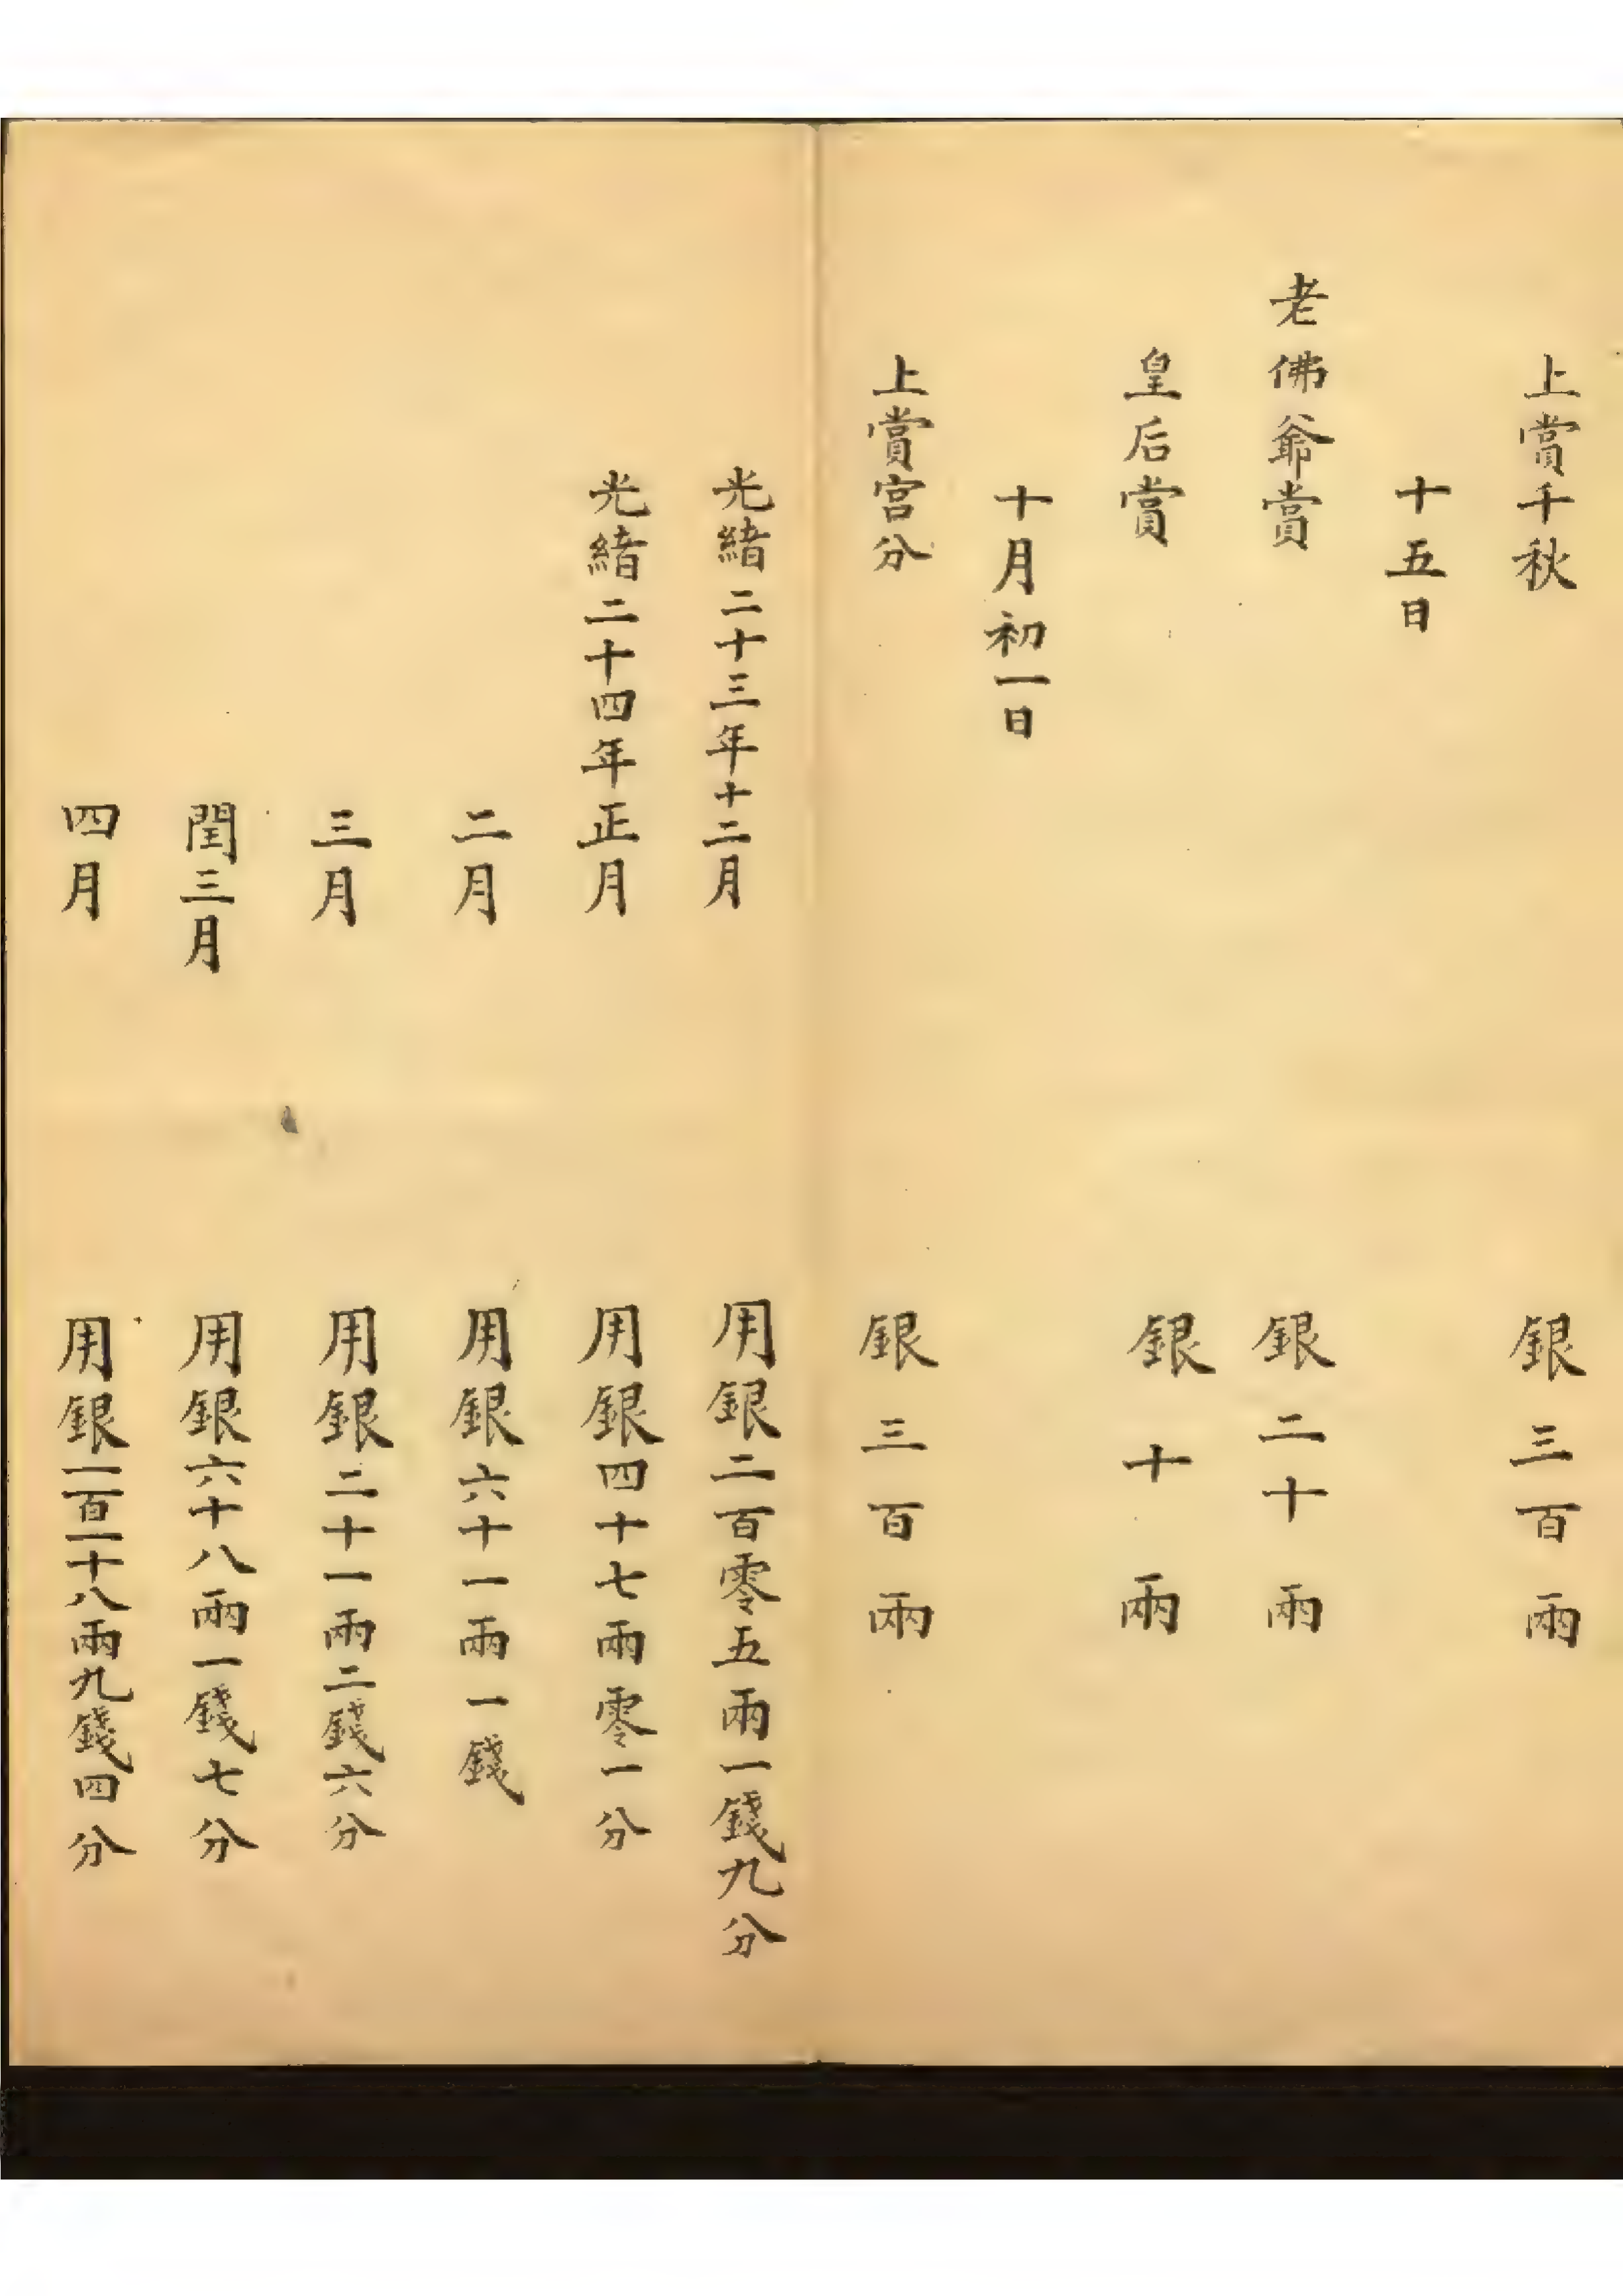 上賞千秋 銀三百兩
十五日
老佛爺賞 銀二十兩
皇后賞 銀十兩
十月初一日
上賞宮分 銀三百兩
光緒二十三年十二月 用銀二百零五兩一錢九分
光緒二十四年正月 用銀四十七兩零一分
二月 用銀六十一兩一錢
三月 用銀二十一兩二錢六分
閏三月 用銀六十八兩一錢七分
四月 用銀一百一十八兩九錢四分